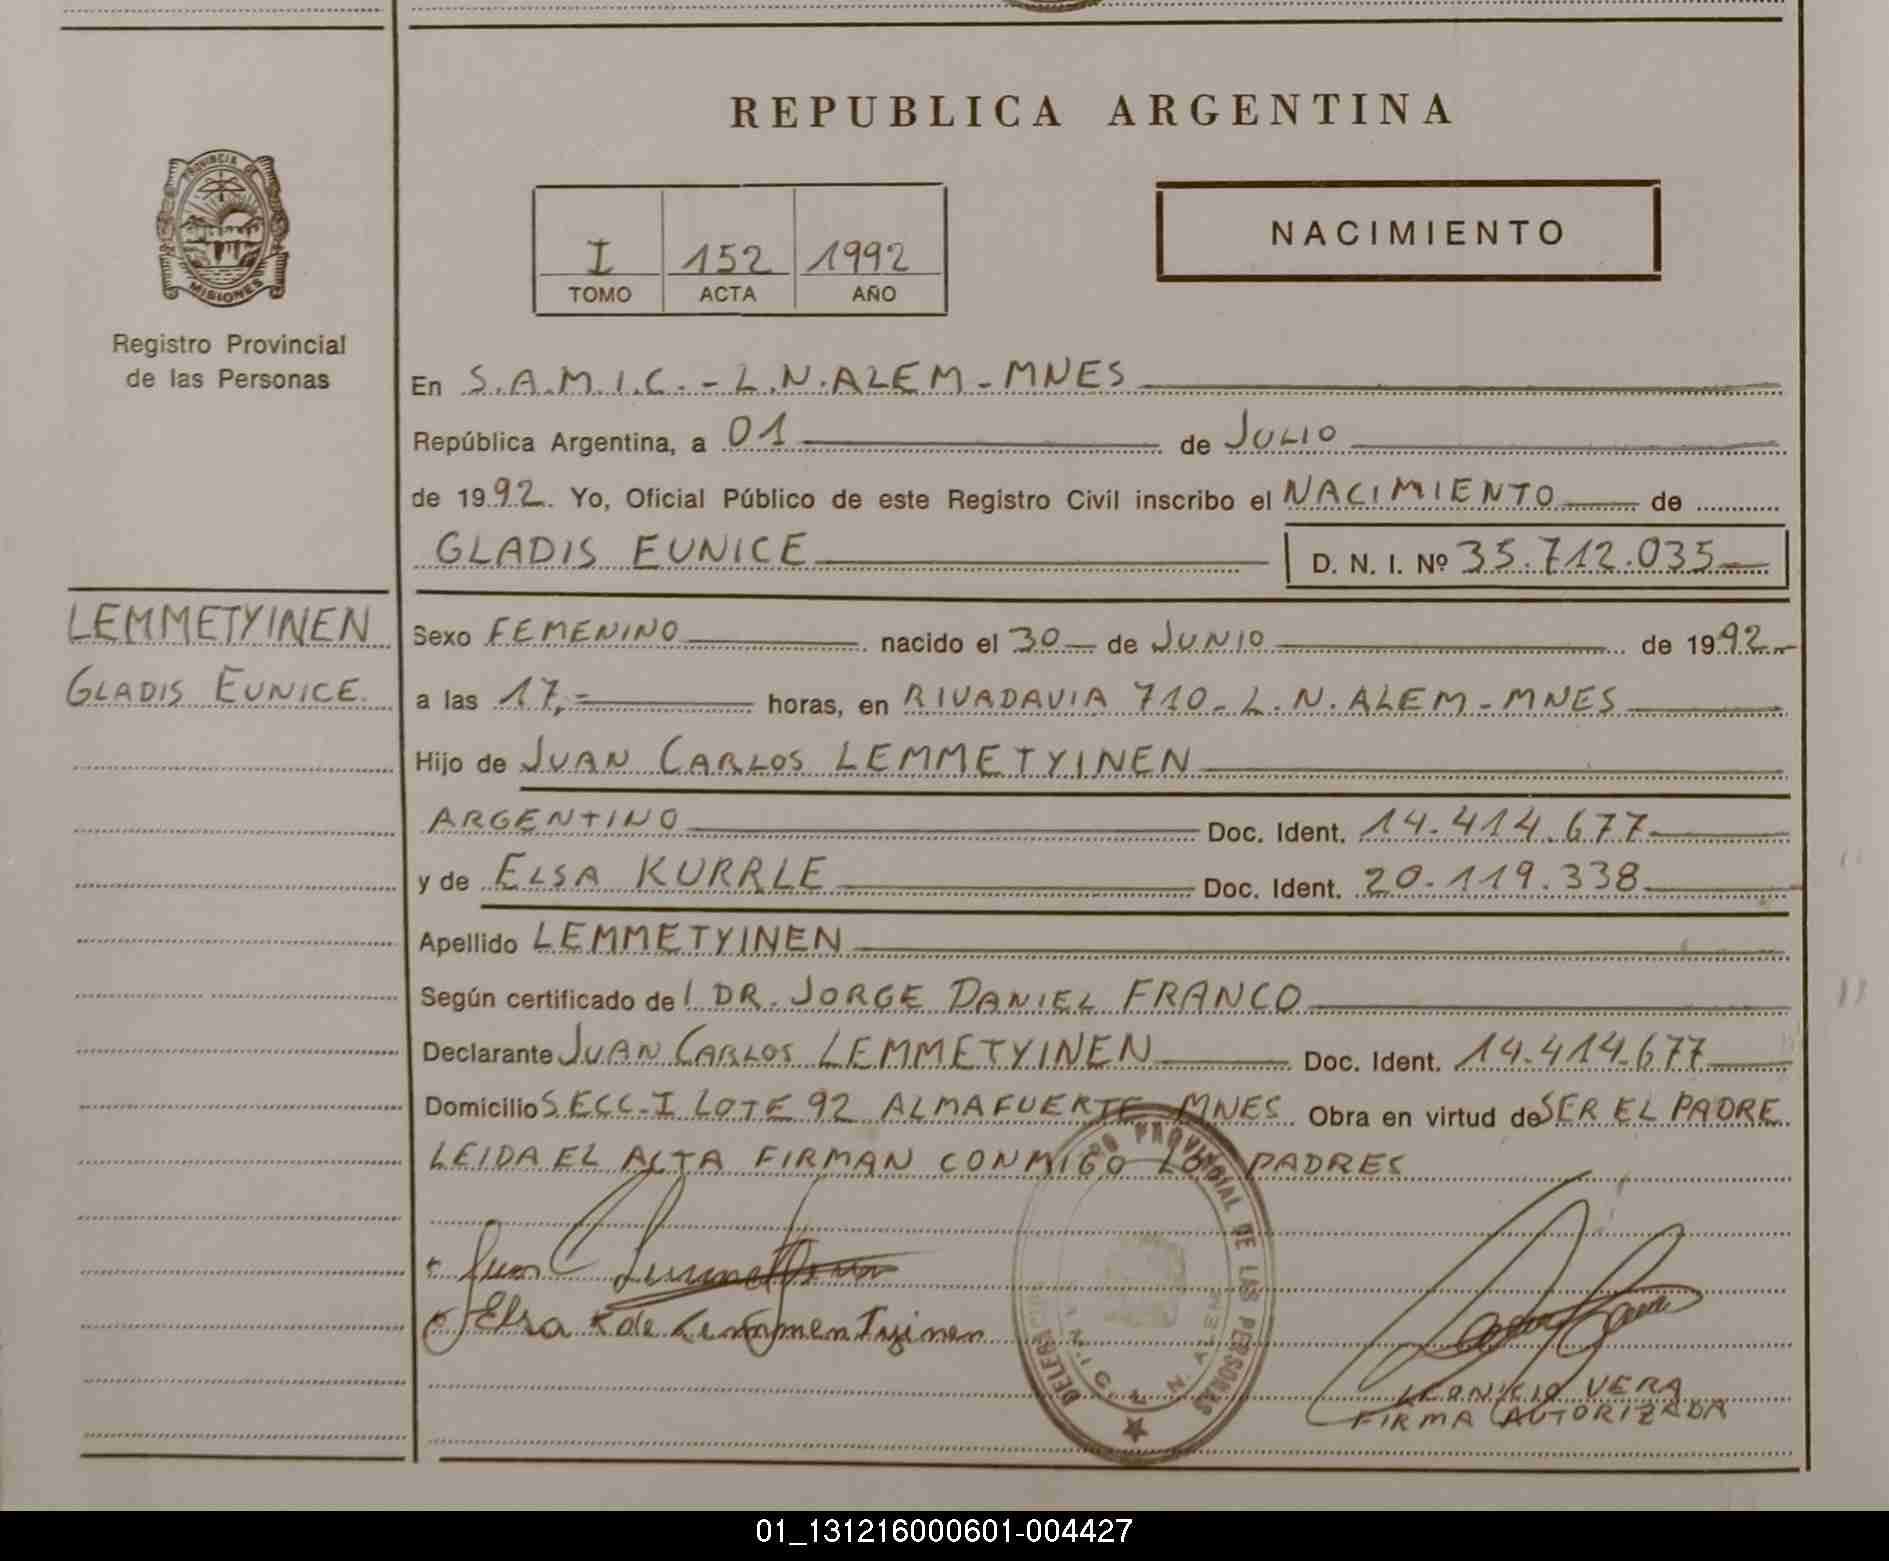 REPUBLICA ARGENTINA
PROVINCIA DE
MISIONES
Registro Provincial
de las Personas
I 152 1992
TOMO ACTA AÑO
NACIMIENTO
En S.A.M.I.C.-L.N.ALEM-MNES
República Argentina, a 01 de JULIO
de 1992. Yo, Oficial Público de este Registro Civil inscribo el NACIMIENTO de
GLADIS EUNICE D. N. I. Nº 35.712.035
LEMMETYINEN
GLADIS EUNICE.
Sexo FEMENINO nacido el 30 de JUNIO de 1992
a las 17,= horas, en RIVADAVIA 710-L.N.ALEM-MNES
Hijo de JUAN CARLOS LEMMETYINEN
ARGENTINO Doc. Ident. 14.414.677
y de ELSA KURRLE Doc. Ident. 20.119.338
Apellido LEMMETYINEN
Según certificado de l DR. JORGE DANIEL FRANCO
Declarante JUAN CARLOS LEMMETYINEN Doc. Ident. 14.414.677
Domicilio SECC-I LOTE 92 ALMAFUERTE MNES Obra en virtud de SER EL PADRE
LEIDA EL ACTA FIRMAN CONMIGO LOS PADRES
PROVINCIAL DE LAS PERSONAS
Elsa K de Lemmentyinen
LEONICIO VERA
FIRMA AUTORIZADA
01_131216000601-004427